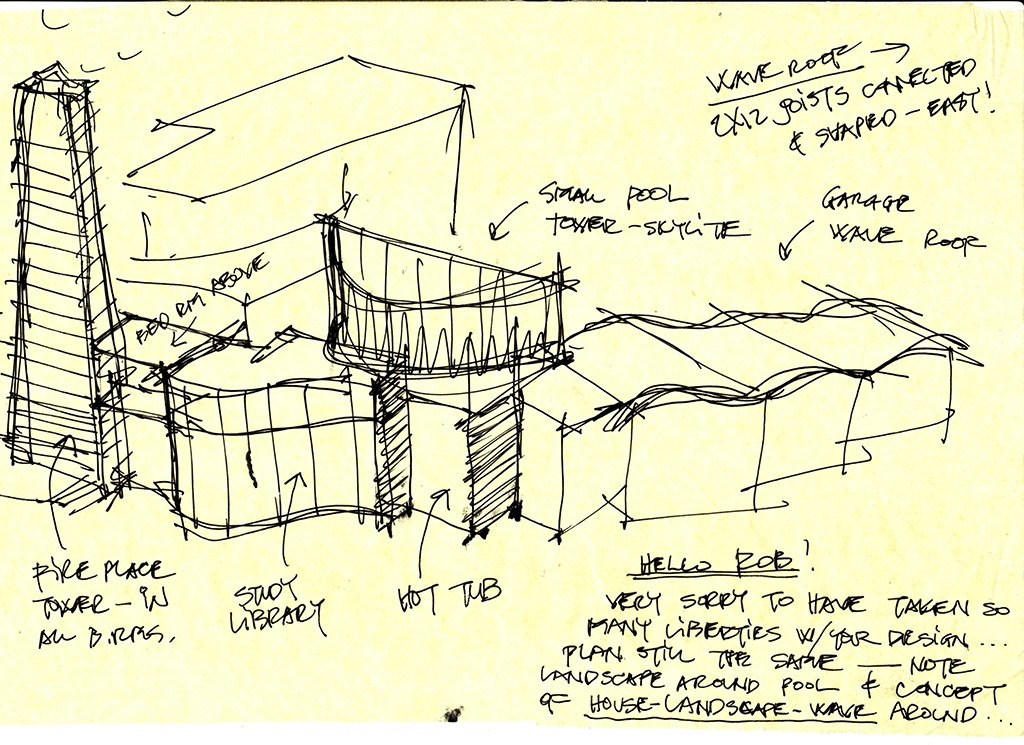 WAVE ROOF →
2X12 JOISTS CONNECTED
& SHAPED - EASY!
SMALL POOL
TOWER - SKYLITE
GARAGE
WAVE ROOF
BED RM ABOVE
FIRE PLACE
TOWER - IN
ALL B.RMS.
STUDY
LIBRARY
HOT TUB
HELLO ROB!
VERY SORRY TO HAVE TAKEN SO
MANY LIBERTIES W/YOUR DESIGN...
PLAN STILL THE SAME — NOTE
LANDSCAPE AROUND POOL & CONCEPT
OF HOUSE-LANDSCAPE-WAVE AROUND...